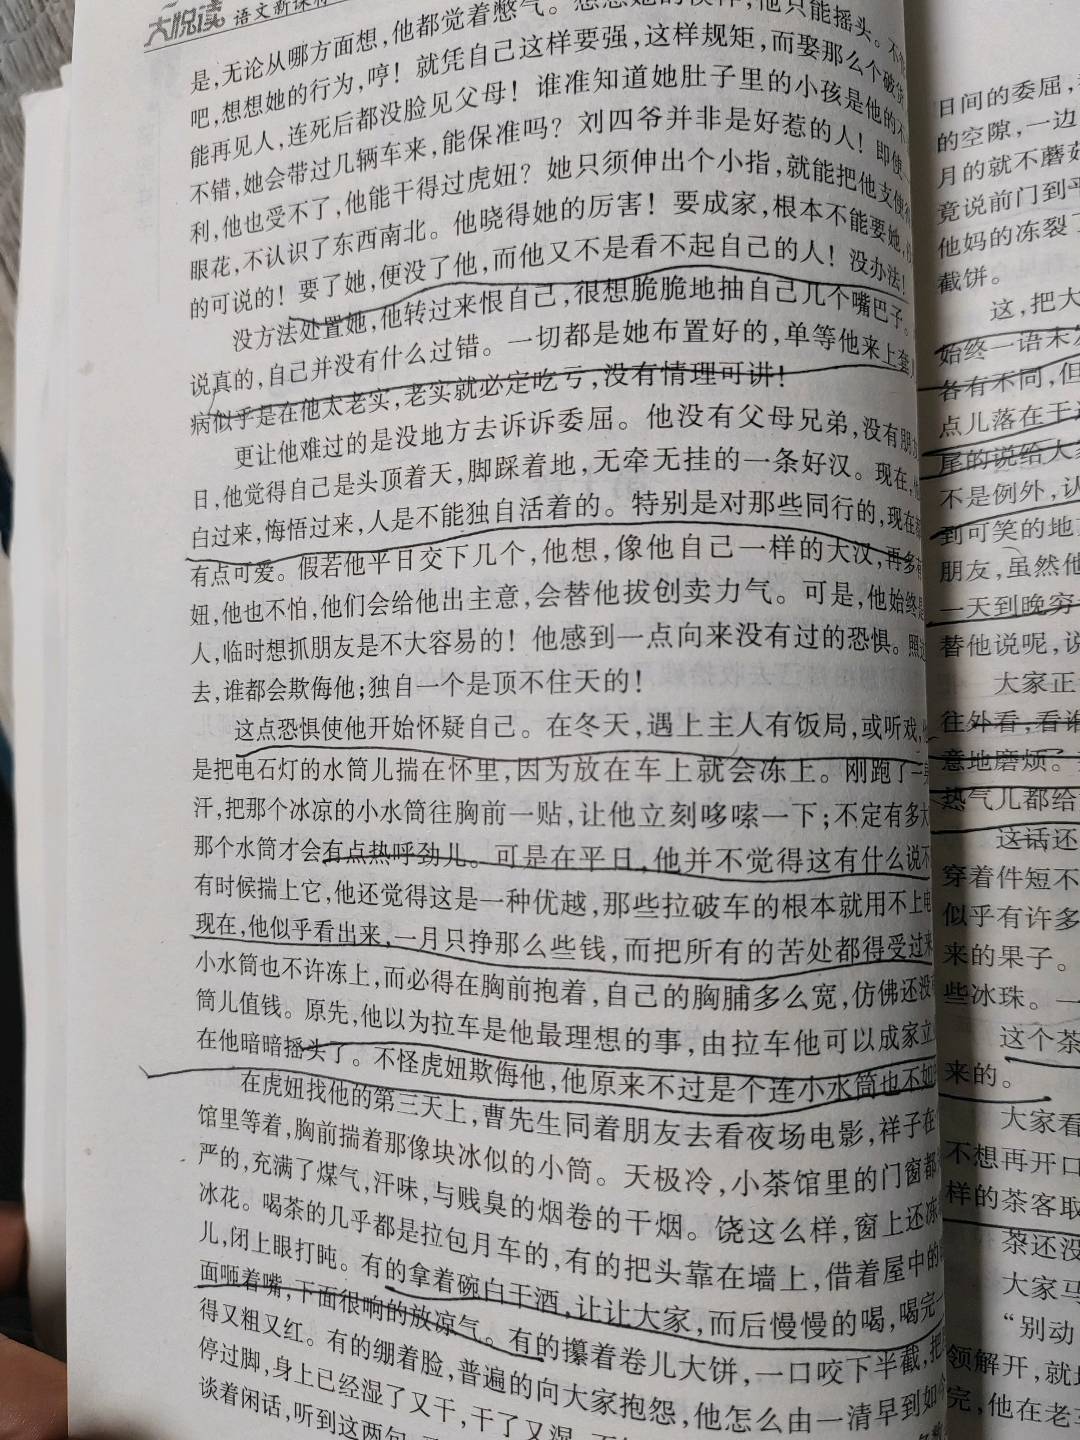 大悦读 语文新课标
是,无论从哪方面想,他都觉着憋气。想想她的模样,他只能摇头。不
吧,想想她的行为,哼!就凭自己这样要强,这样规矩,而娶那么个破货
能再见人,连死后都没脸见父母!谁准知道她肚子里的小孩是他的不
不错,她会带过几辆车来,能保准吗?刘四爷并非是好惹的人!即使
利,他也受不了,他能干得过虎妞?她只须伸出个小指,就能把他支使
眼花,不认识了东西南北。他晓得她的厉害!要成家,根本不能要她,
的可说的!要了她,便没了他,而他又不是看不起自己的人!没办法!
没方法处置她,他转过来恨自己,很想脆脆地抽自己几个嘴巴子。
说真的,自己并没有什么过错。一切都是她布置好的,单等他来上套
病似乎是在他太老实,老实就必定吃亏,没有情理可讲!
更让他难过的是没地方去诉诉委屈。他没有父母兄弟,没有朋
日,他觉得自己是头顶着天,脚踩着地,无牵无挂的一条好汉。现在,
白过来,悔悟过来,人是不能独自活着的。特别是对那些同行的,现在
有点可爱。假若他平日交下几个,他想,像他自己一样的大汉,再多
妞,他也不怕,他们会给他出主意,会替他拔创卖力气。可是,他始终
人,临时想抓朋友是不大容易的!他感到一点向来没有过的恐惧。照
去,谁都会欺侮他;独自一个是顶不住天的!
这点恐惧使他开始怀疑自己。在冬天,遇上主人有饭局,或听戏,
是把电石灯的水筒儿揣在怀里,因为放在车上就会冻上。刚跑了一
汗,把那个冰凉的小水筒往胸前一贴,让他立刻哆嗦一下;不定有多大
那个水筒才会有点热呼劲儿。可是在平日,他并不觉得这有什么说不
有时候揣上它,他还觉得这是一种优越,那些拉破车的根本就用不上电
现在,他似乎看出来,一月只挣那么些钱,而把所有的苦处都得受过来
小水筒也不许冻上,而必得在胸前抱着,自己的胸脯多么宽,仿佛还没
筒儿值钱。原先,他以为拉车是他最理想的事,由拉车他可以成家立
在他暗暗摇头了。不怪虎妞欺侮他,他原来不过是个连小水筒也不如
在虎妞找他的第三天上,曹先生同着朋友去看夜场电影,祥子在
馆里等着,胸前揣着那像块冰似的小筒。天极冷,小茶馆里的门窗都
严的,充满了煤气,汗味,与贱臭的烟卷的干烟。饶这么样,窗上还冻
冰花。喝茶的几乎都是拉包月车的,有的把头靠在墙上,借着屋中的
儿,闭上眼打盹。有的拿着碗白干酒,让让大家,而后慢慢的喝,喝完一
面咂着嘴,下面很响的放凉气。有的攥着卷儿大饼,一口咬下半截,把
得又粗又红。有的绷着脸,普遍的向大家抱怨,他怎么由一清早到如今
停过脚,身上已经湿了又干,干了又湿
谈着闲话,听到这两句
日间的委屈,
的空隙,一边
月的就不蘑菇
竟说前门到平
他妈的冻裂了
截饼。
这,把大
始终一语未
各有不同,但
点儿落在于
尾的说给大家
不是例外,认
到可笑的地
朋友,虽然他
一天到晚穷
替他说呢,说
大家正
往外看,看谁
意地磨烦。
热气儿都给
这话还
穿着件短不
似乎有许多
来的果子。
些冰珠。一
这个茶
来的。
大家看
不想再开口
样的茶客取
茶还没
大家马
“别动
领解开,就
完,他在老